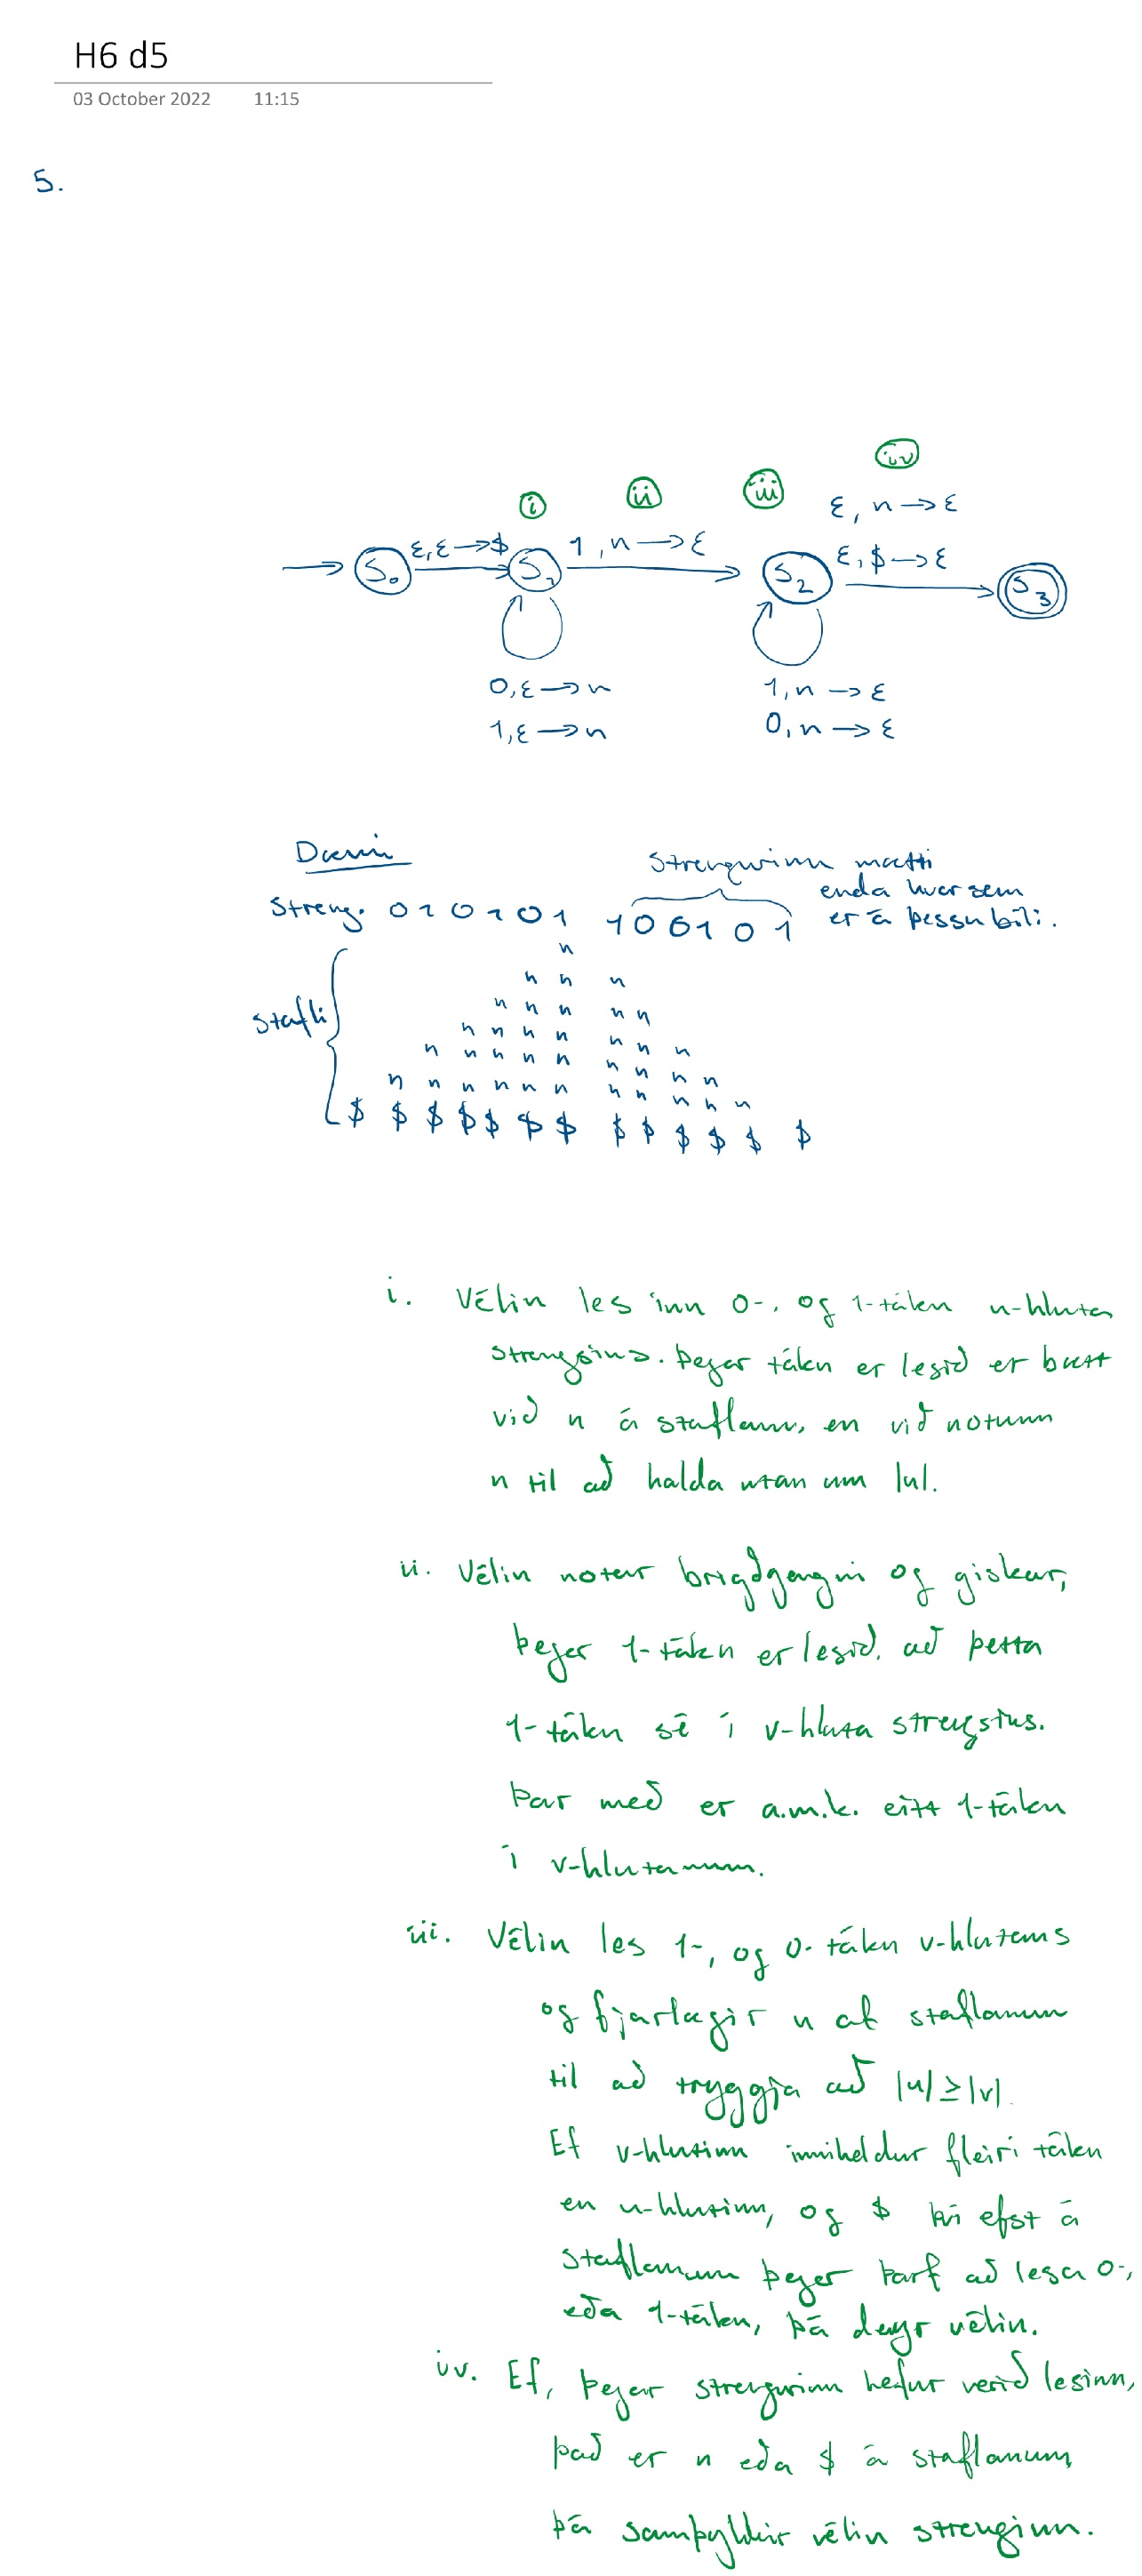 H6 d5
03 October 2022 11:15
5.
i ii iii iv
ε, n → ε
S0 ε,ε → $ S1 1, n → ε S2 ε, $ → ε S3
0,ε → n 1, n → ε
1,ε → n 0, n → ε
Dæmi
Strengurinn mætti
enda hvar sem
er á þessu bili.
Streng. 0 1 0 1 0 1 1 0 0 1 0 1
n
n n n
n n n n n
n n n n n n n
n n n n n n n n n
n n n n n n n n n n n
Stafli
$ $ $ $ $ $ $ $ $ $ $ $ $
i. Vélin les inn 0-, og 1-tákn u-hluta
strengsins. Þegar tákn er lesið er bætt
við n á staflann, en við notum
n til að halda utan um |u|.
ii. Vélin notar brigðgengni og giskar,
þegar 1-tákn er lesið, að þetta
1-tákn sé í v-hluta strengsins.
Þar með er a.m.k. eitt 1-tákn
í v-hlutanum.
iii. Vélin les 1-, og 0-tákn v-hlutans
og fjarlægir n af staflanum
til að tryggja að |u| ≥ |v|.
Ef v-hlutinn inniheldur fleiri tákn
en u-hlutinn, og $ því efst á
staflanum þegar þarf að lesa 0-,
eða 1-tákn, þá deyr vélin.
iv. Ef, þegar strengurinn hefur verið lesinn,
það er n eða $ á staflanum,
þá samþykkir vélin strenginn.